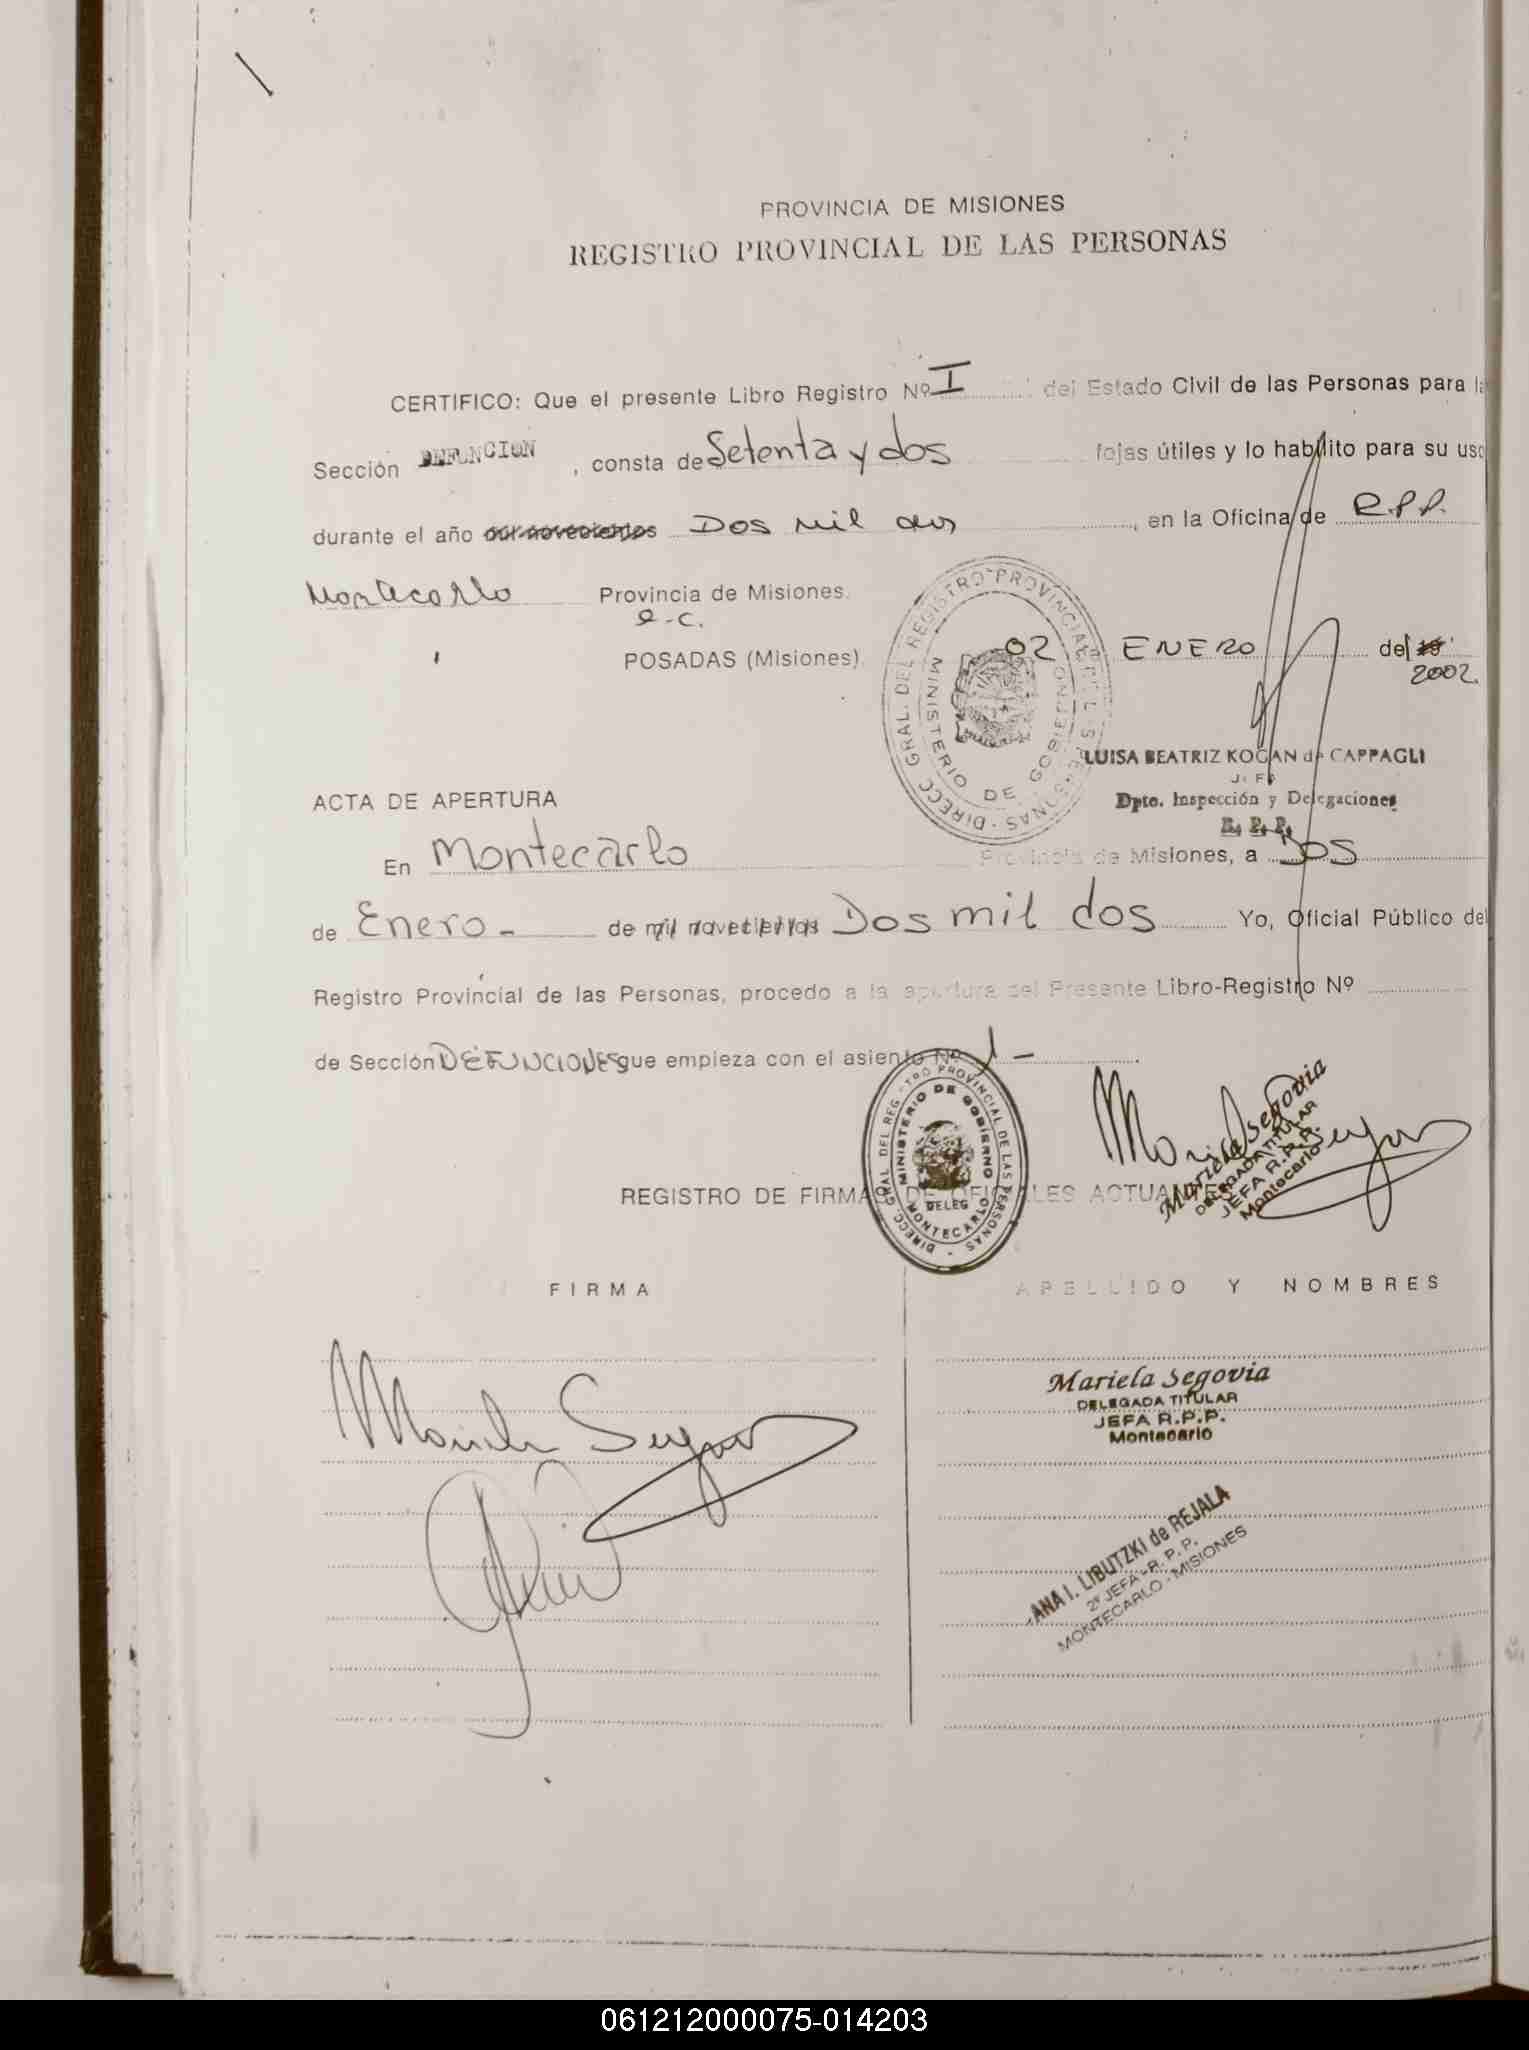 PROVINCIA DE MISIONES
REGISTRO PROVINCIAL DE LAS PERSONAS
CERTIFICO: Que el presente Libro Registro Nº I del Estado Civil de las Personas para la
Sección DEFUNCION, consta de Setenta y dos fojas útiles y lo habilito para su uso
durante el año mil novecientos Dos mil dos, en la Oficina de R.P.P.
Montecarlo Provincia de Misiones.
e.c.
POSADAS (Misiones), 02 ENERO del 19
2002.
DIRECC. GRAL. DEL REGISTRO PROVINCIAL DE LAS PERSONAS
MINISTERIO DE GOBIERNO
LUISA BEATRIZ KOGAN de CAPPAGLI
JEFE
Dpto. Inspección y Delegaciones
R. P. P.
ACTA DE APERTURA
En Montecarlo Provincia de Misiones, a Dos
de Enero - de mil novecientos Dos mil dos Yo, Oficial Público del
Registro Provincial de las Personas, procedo a la apertura del Presente Libro-Registro Nº
de Sección DEFUNCIONES que empieza con el asiento Nº 1 -.
DIRECC. GRAL. DEL REGISTRO PROVINCIAL DE LAS PERSONAS
MINISTERIO DE GOBIERNO
DELEG
MONTECARLO
Mariela Segovia
Mariela Segovia
DELEGADA TITULAR
JEFA R.P.P.
Montecarlo
REGISTRO DE FIRMAS DE OFICIALES ACTUANTES
FIRMA APELLIDO Y NOMBRES
Mariela Segovia
Mariela Segovia
DELEGADA TITULAR
JEFA R.P.P.
Montecarlo
ANA I. LIBUTZKI de REJALA
2ª JEFA - R. P. P.
MONTECARLO - MISIONES
061212000075-014203